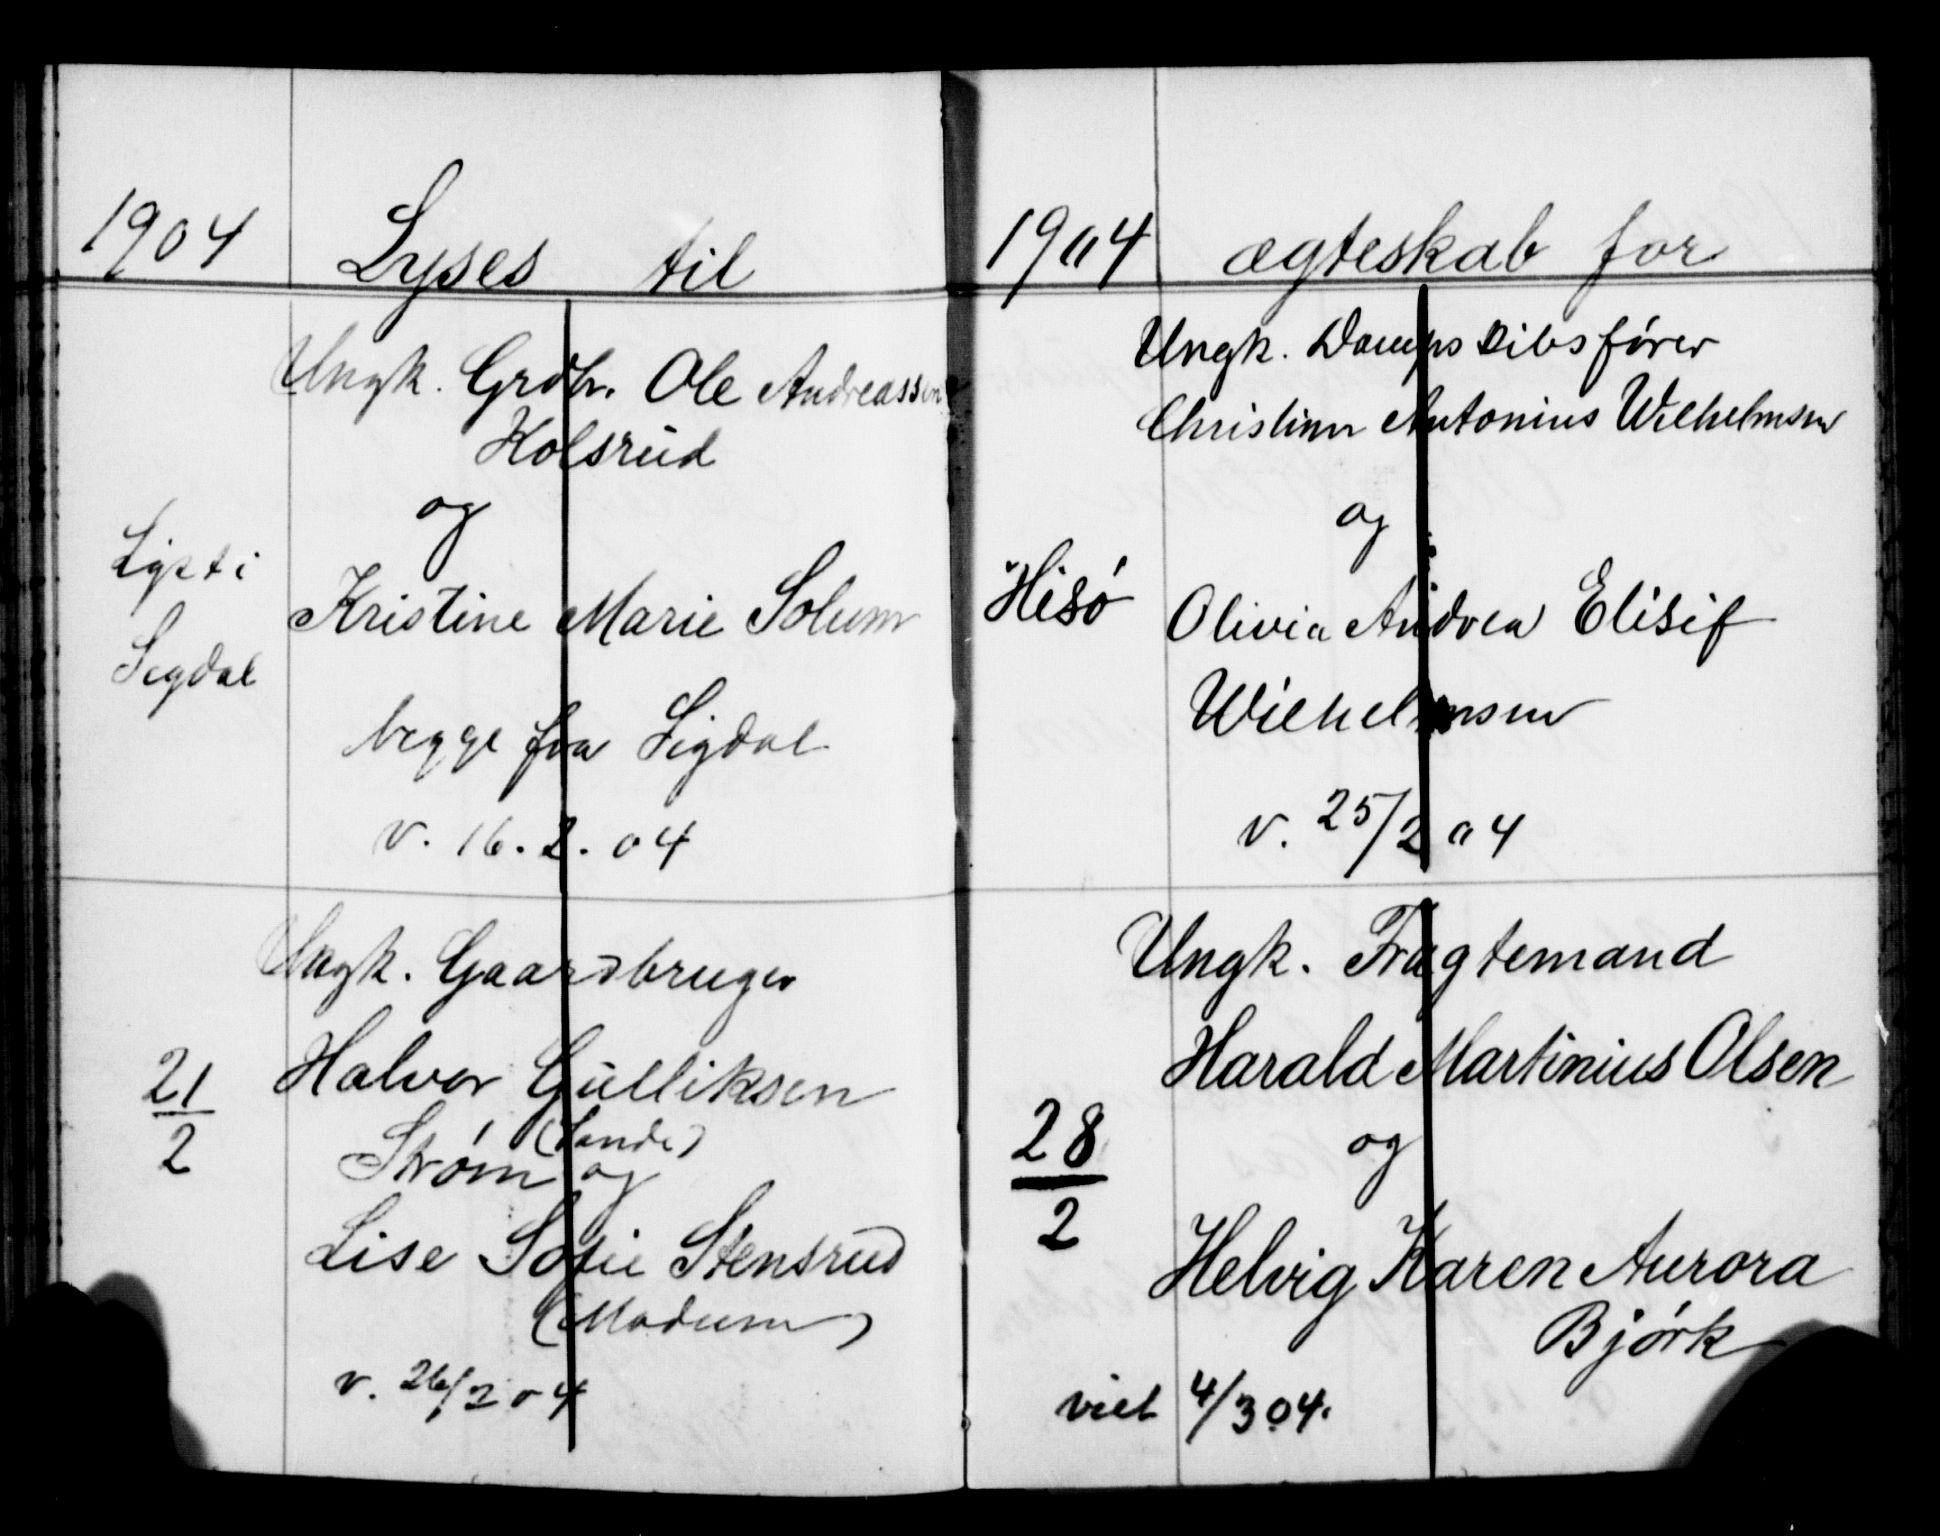 1904 Lyses til
Ungk. Grdbr. Ole Andreassen
Kolsrud
og
Lyst i
Kristine Marie Solum
Sigdal
begge fra Sigdal
v. 16.2.04
Ungk. Gaardbruger
Halvor Gulliksen
21/2
(Sande)
Strøm og
Lise Sofie Stensrud
(Modum)
v. 26/2 04
1904 ægteskab for
Ungk. Dampskibsfører
Christian Antonius Wilhelmsen
og
Hisø
Olivia Andrea Elisif
Wilhelmsen
v. 25/2 04
Ungk. Fragtemand
Harald Martinius Olsen
28/2
og
Helvig Karen Aurora
Bjørk
viet 4/3 04.